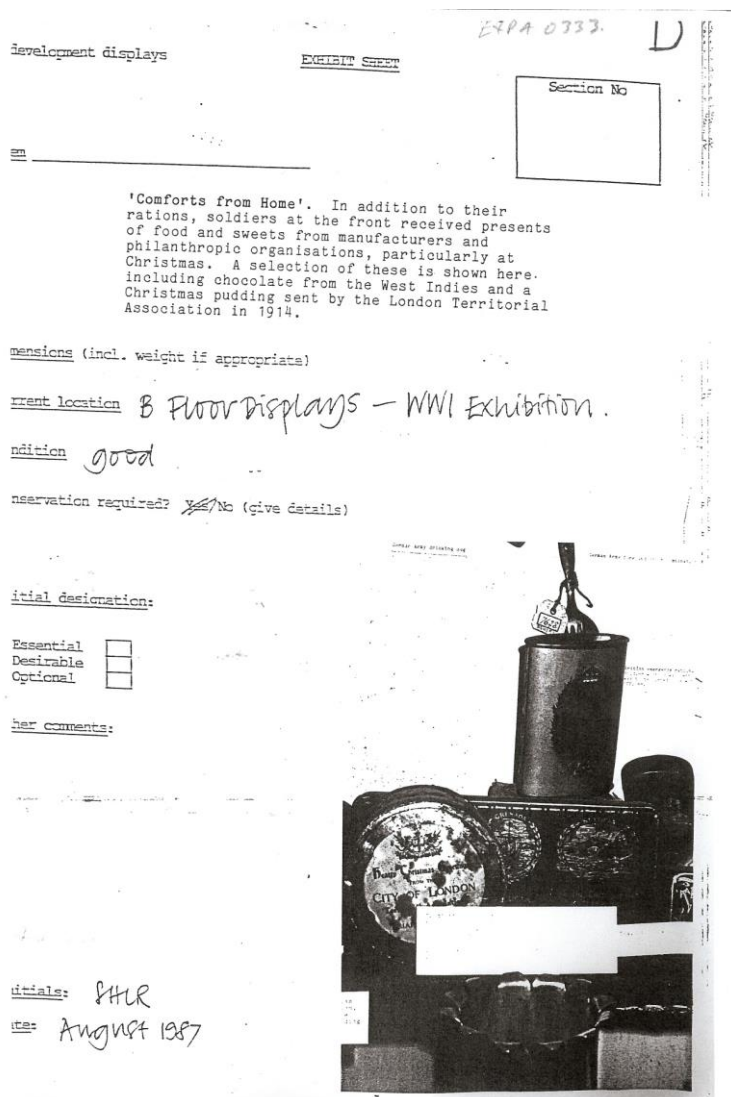 EXPA 0333. D
development displays
EXHIBIT SHEET
Section No
em
'Comforts from Home'. In addition to their
rations, soldiers at the front received presents
of food and sweets from manufacturers and
philanthropic organisations, particularly at
Christmas. A selection of these is shown here.
including chocolate from the West Indies and a
Christmas pudding sent by the London Territorial
Association in 1914.
mensions (incl. weight if appropriate)
rrent location B Floor Displays – WWI Exhibition.
ndition good
nservation required? Yes/No (give details)
German Army drinking mug
itial designation:
Essential
Desirable
Optional
her comments:
CITY OF LONDON
itials: SHLR
te: August 1987